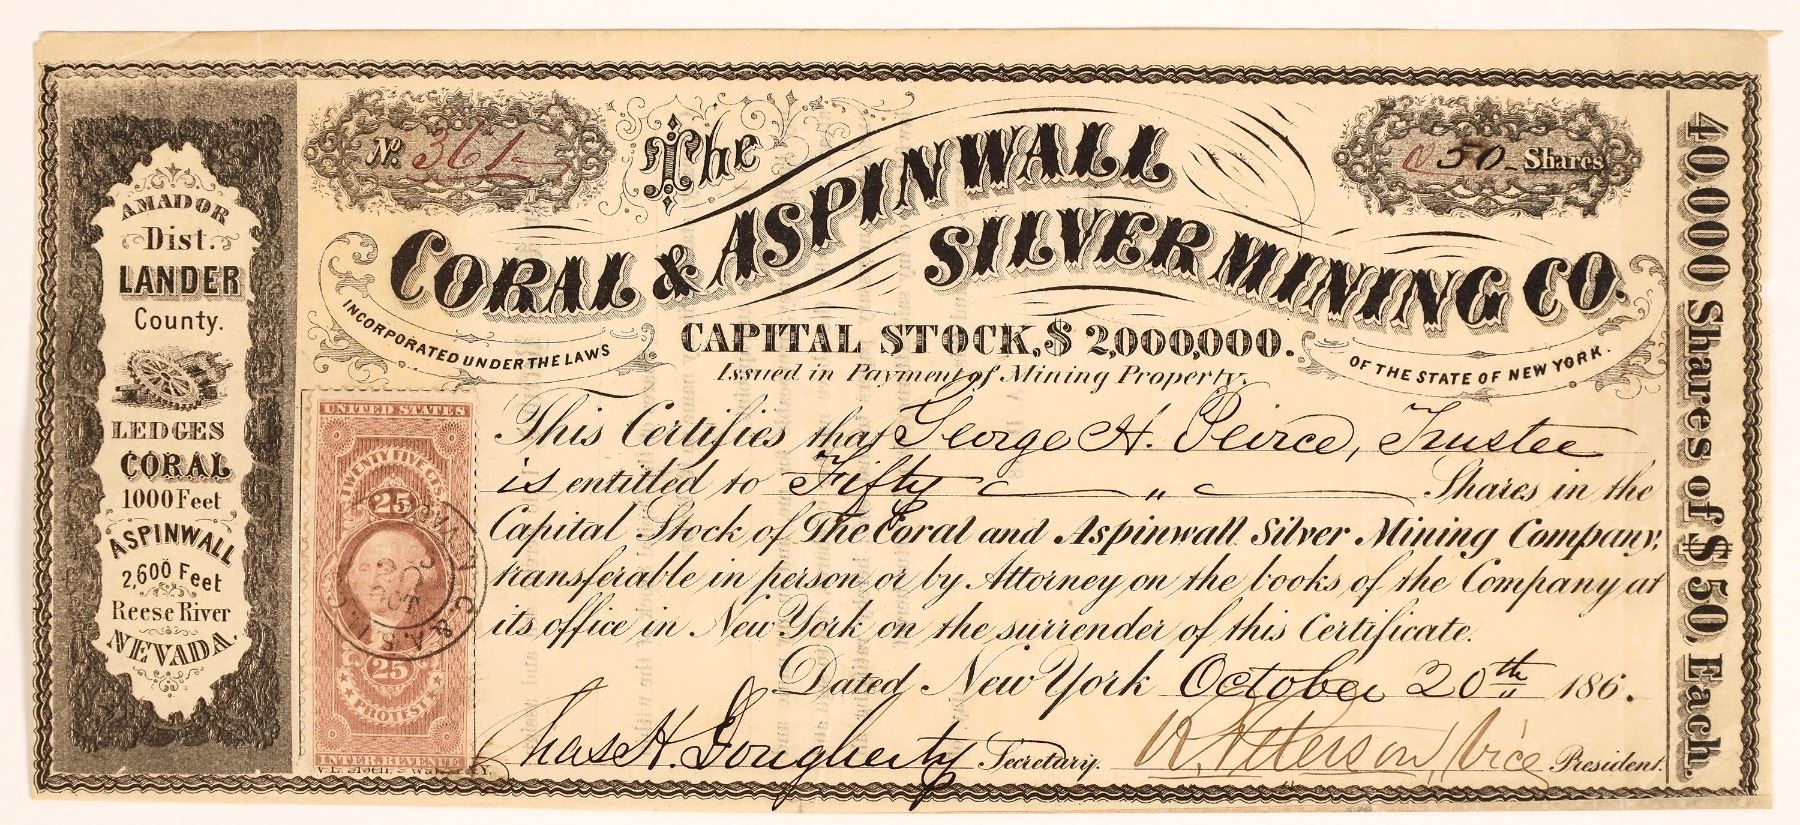 AMADOR
Dist.
LANDER
County.
LEDGES
CORAL
1000 Feet
ASPINWALL
2,600 Feet
Reese River
NEVADA.
No. 361
50 Shares
The
CORAL & ASPINWALL
SILVER MINING CO.
INCORPORATED UNDER THE LAWS
OF THE STATE OF NEW YORK.
CAPITAL STOCK, $ 2,000,000.
Issued in Payment of Mining Property.
This Certifies that George H. Peirce, Trustee
is entitled to Fifty " Shares in the
Capital Stock of The Coral and Aspinwall Silver Mining Company,
transferable in person or by Attorney on the books of the Company at
its office in New York on the surrender of this Certificate.
Dated New York October 20th 186.
Chas H. Dougherty Secretary.
Peterson, Vice President.
40,000 Shares of $50, Each.
UNITED STATES
TWENTY FIVE CTS.
25
20
OCT
25
PROTEST
INTER. REVENUE